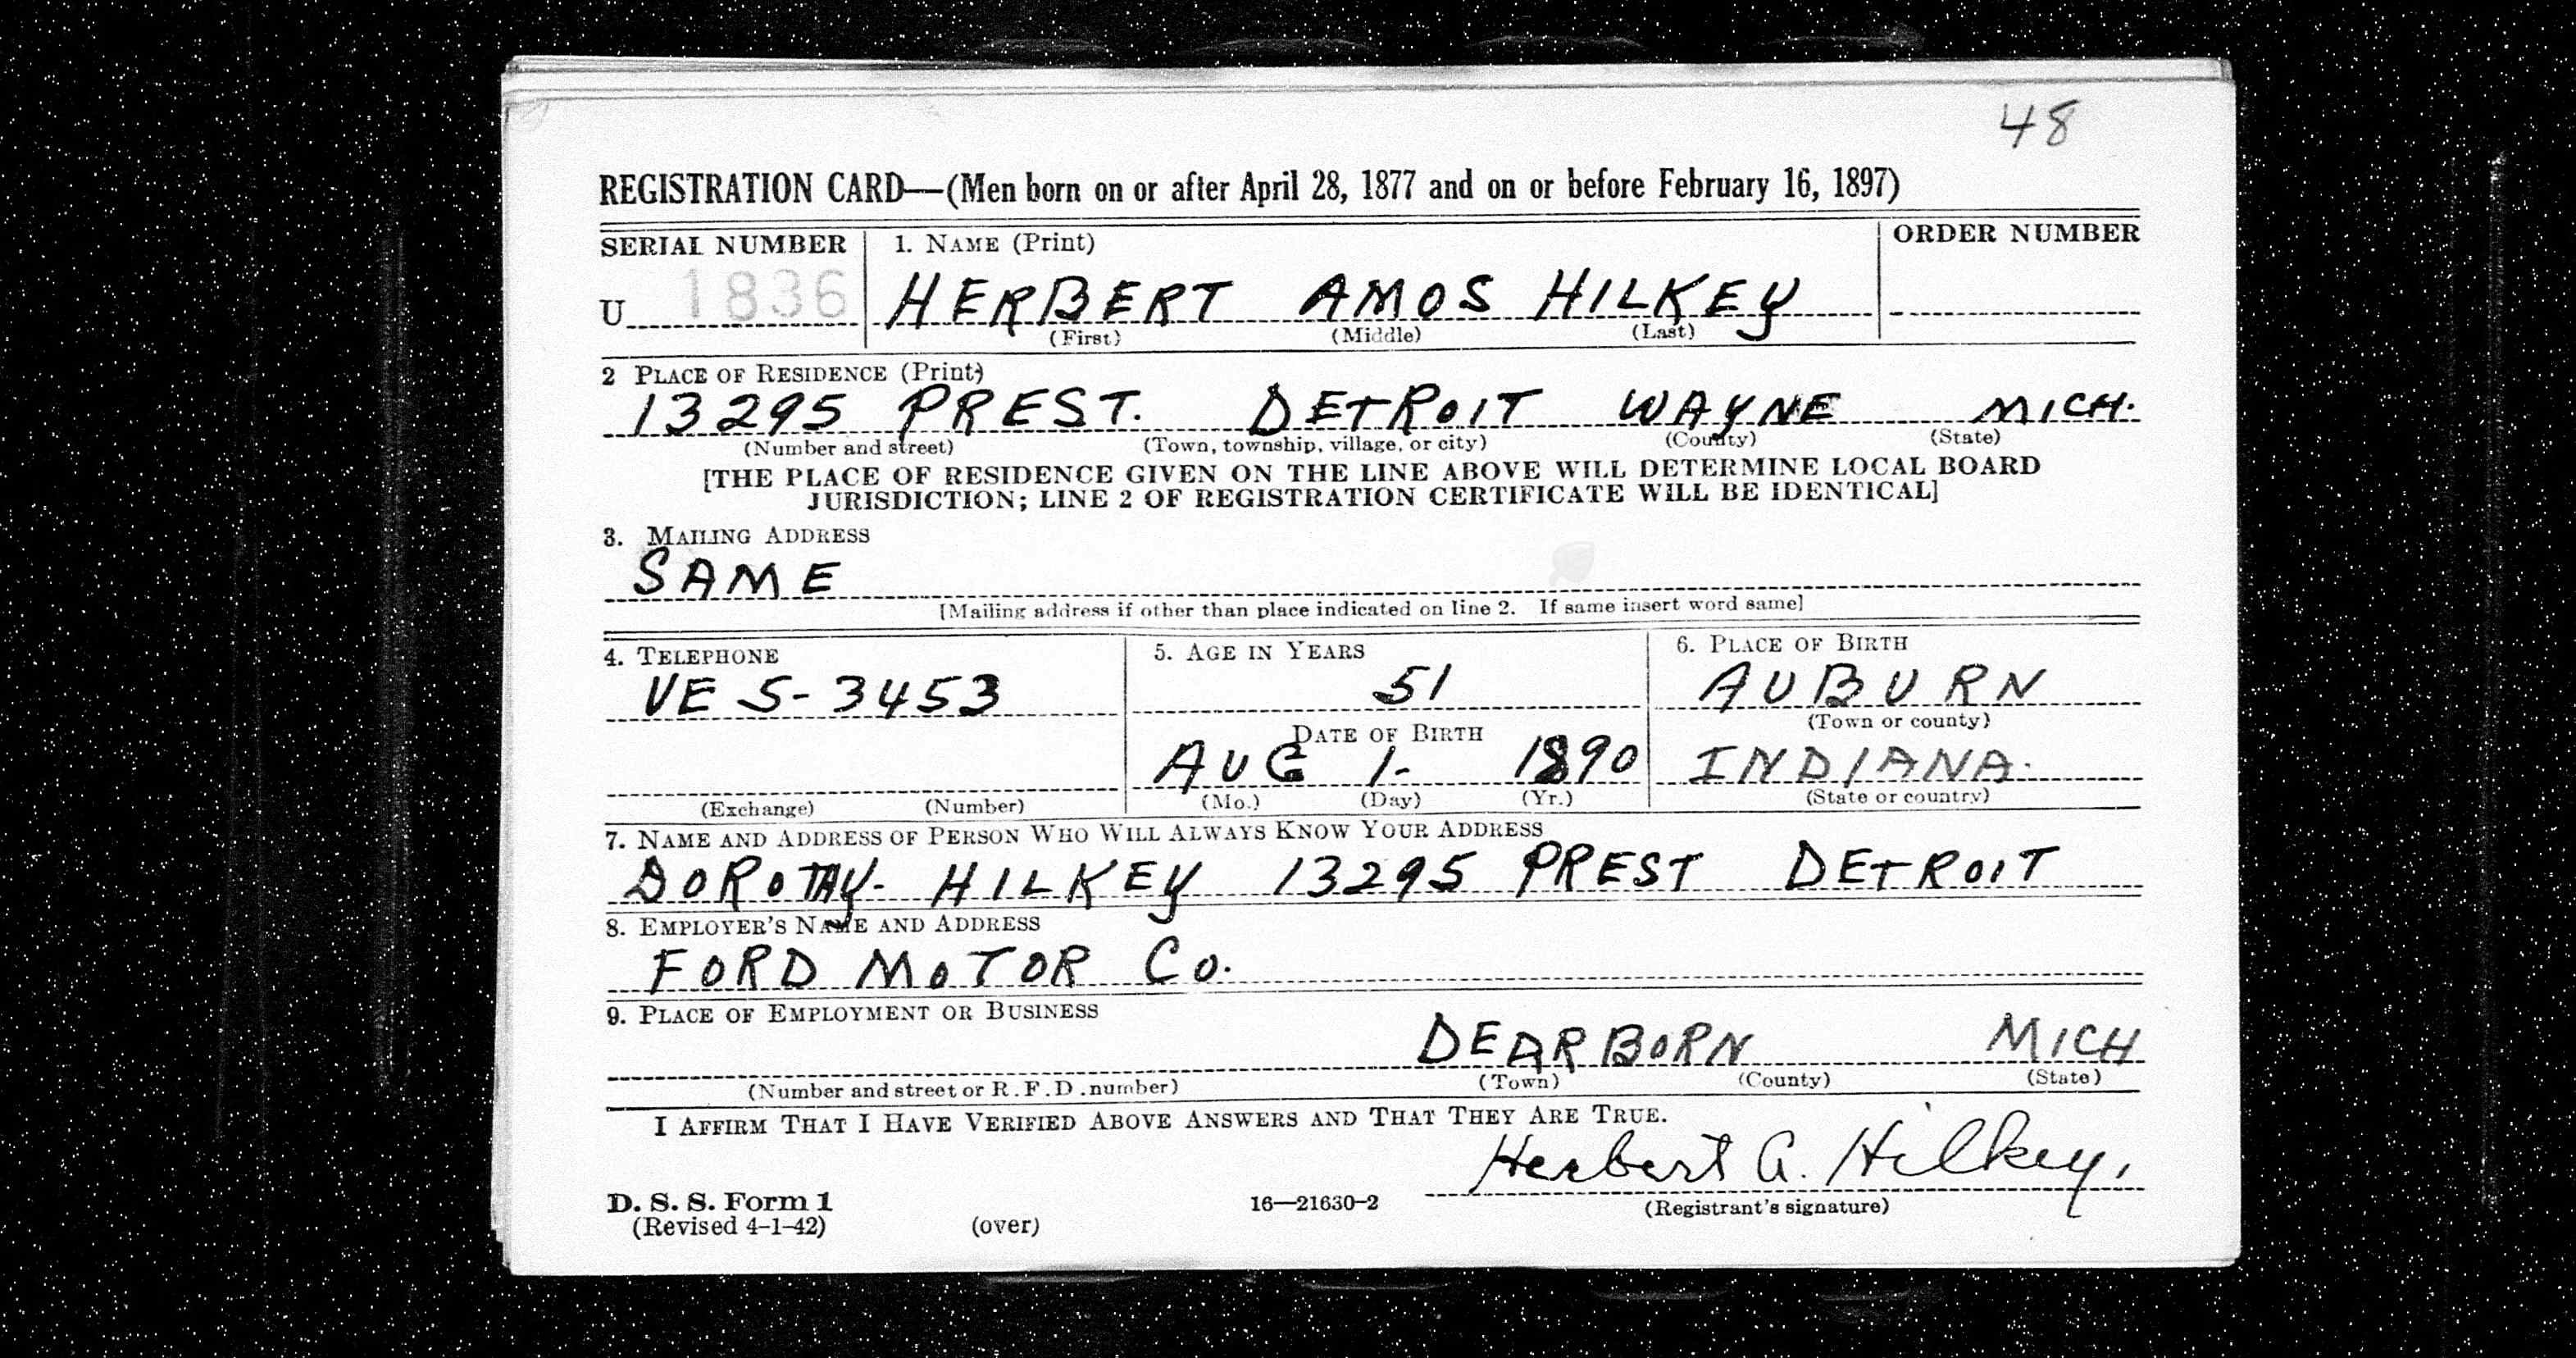 48
REGISTRATION CARD—(Men born on or after April 28, 1877 and on or before February 16, 1897)
SERIAL NUMBER 1. NAME (Print) ORDER NUMBER
U 1836 HERBERT AMOS HILKEY
(First) (Middle) (Last)
2 PLACE OF RESIDENCE (Print)
13295 PREST. DETROIT WAYNE MICH.
(Number and street) (Town, township, village, or city) (County) (State)
[THE PLACE OF RESIDENCE GIVEN ON THE LINE ABOVE WILL DETERMINE LOCAL BOARD
JURISDICTION; LINE 2 OF REGISTRATION CERTIFICATE WILL BE IDENTICAL]
3. MAILING ADDRESS
SAME
[Mailing address if other than place indicated on line 2. If same insert word same]
4. TELEPHONE 5. AGE IN YEARS 6. PLACE OF BIRTH
VE 5-3453 51 AUBURN
(Town or county)
DATE OF BIRTH
AUG 1- 1890 INDIANA.
(Exchange) (Number) (Mo.) (Day) (Yr.) (State or country)
7. NAME AND ADDRESS OF PERSON WHO WILL ALWAYS KNOW YOUR ADDRESS
DOROTHY- HILKEY 13295 PREST DETROIT
8. EMPLOYER'S NAME AND ADDRESS
FORD MOTOR Co.
9. PLACE OF EMPLOYMENT OR BUSINESS
DEARBORN MICH
(Number and street or R.F.D. number) (Town) (County) (State)
I AFFIRM THAT I HAVE VERIFIED ABOVE ANSWERS AND THAT THEY ARE TRUE.
Herbert A. Hilkey.
D. S. S. Form 1 16—21630-2 (Registrant's signature)
(Revised 4-1-42) (over)